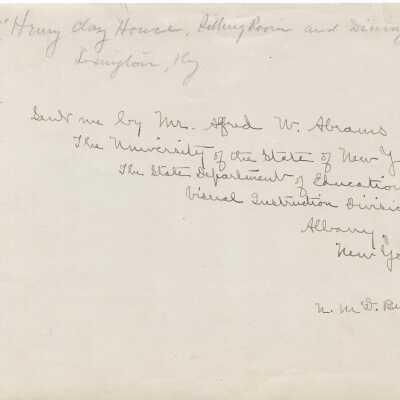 Henry Clay House, Sitting Room and Dining
Lexington, Ky
Sent me by Mr. Alfred W. Abrams
The University of the State of New Y
The State Department of Education
Visual Instruction Divisio
Albany,
New Yo
N. McD. B